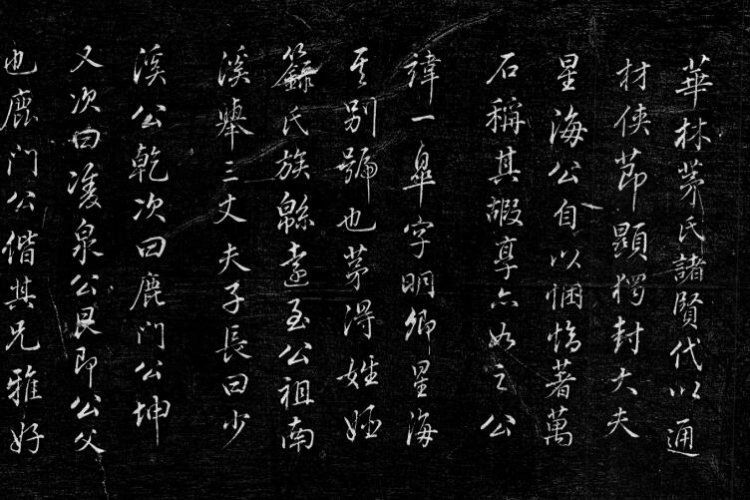 華林茅氏諸賢代以通
材俠節顯獨封大夫
星海公自以悃愊著萬
石稱其嘏享亦如之公
諱一皋字明卿星海
其別號也茅得姓姬
籙氏族緜遠至公祖南
溪舉三丈夫子長曰少
溪公乾次曰鹿門公坤
又次曰雙泉公艮即公父
也鹿門公偕其兄雅好